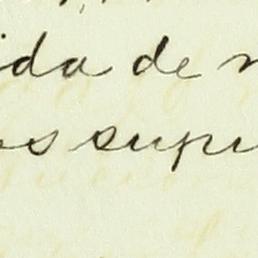 ida de
s supr